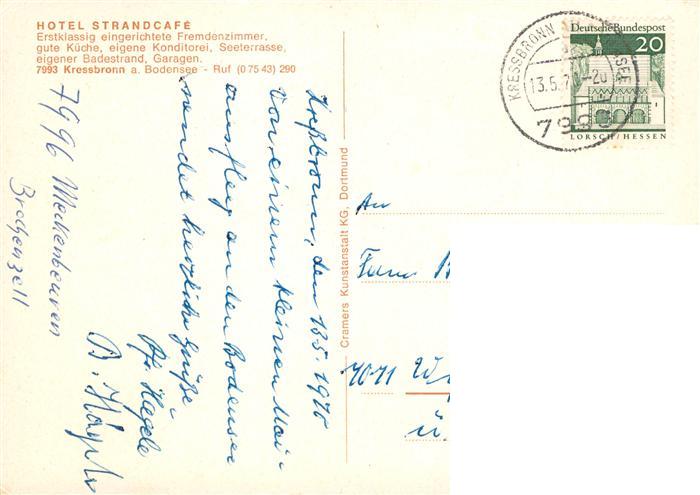 HOTEL STRANDCAFÉ
Erstklassig eingerichtete Fremdenzimmer,
gute Küche, eigene Konditorei, Seeterrasse,
eigener Badestrand, Garagen.
7993 Kressbronn a. Bodensee - Ruf (0 75 43) 290
Kreßbronn, den 13.5.1970
Von einem kleinen Mai-
ausflug an den Bodensee
sendet herzliche Grüße
Hägele
B.
7996 Meckenbeuren
Brochenzell
Cramers Kunstanstalt KG, Dortmund
KRESSBRONN
13.5.7
-20
7993
Deutsche Bundespost
20
LORSCH/HESSEN
An
Fam
7071
ü.